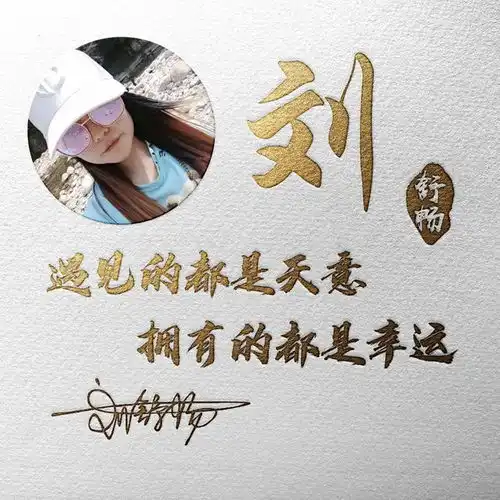 刘
舒畅
遇见的都是天意
拥有的都是幸运
刘舒畅